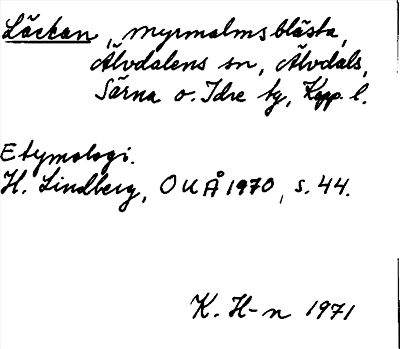 Läckan, myrmalmsblästa,
Älvdalens sn, Älvdals,
Särna o. Idre tg, Kopp. l.
Etymologi.
H. Lindberg, OUÅ 1970, s. 44.
K. H-n 1971